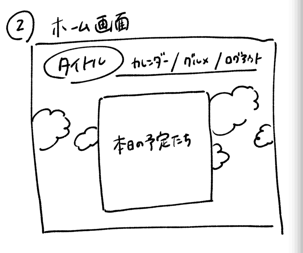 ② ホーム画面
タイトル カレンダー / グルメ / ログアウト
本日の予定たち